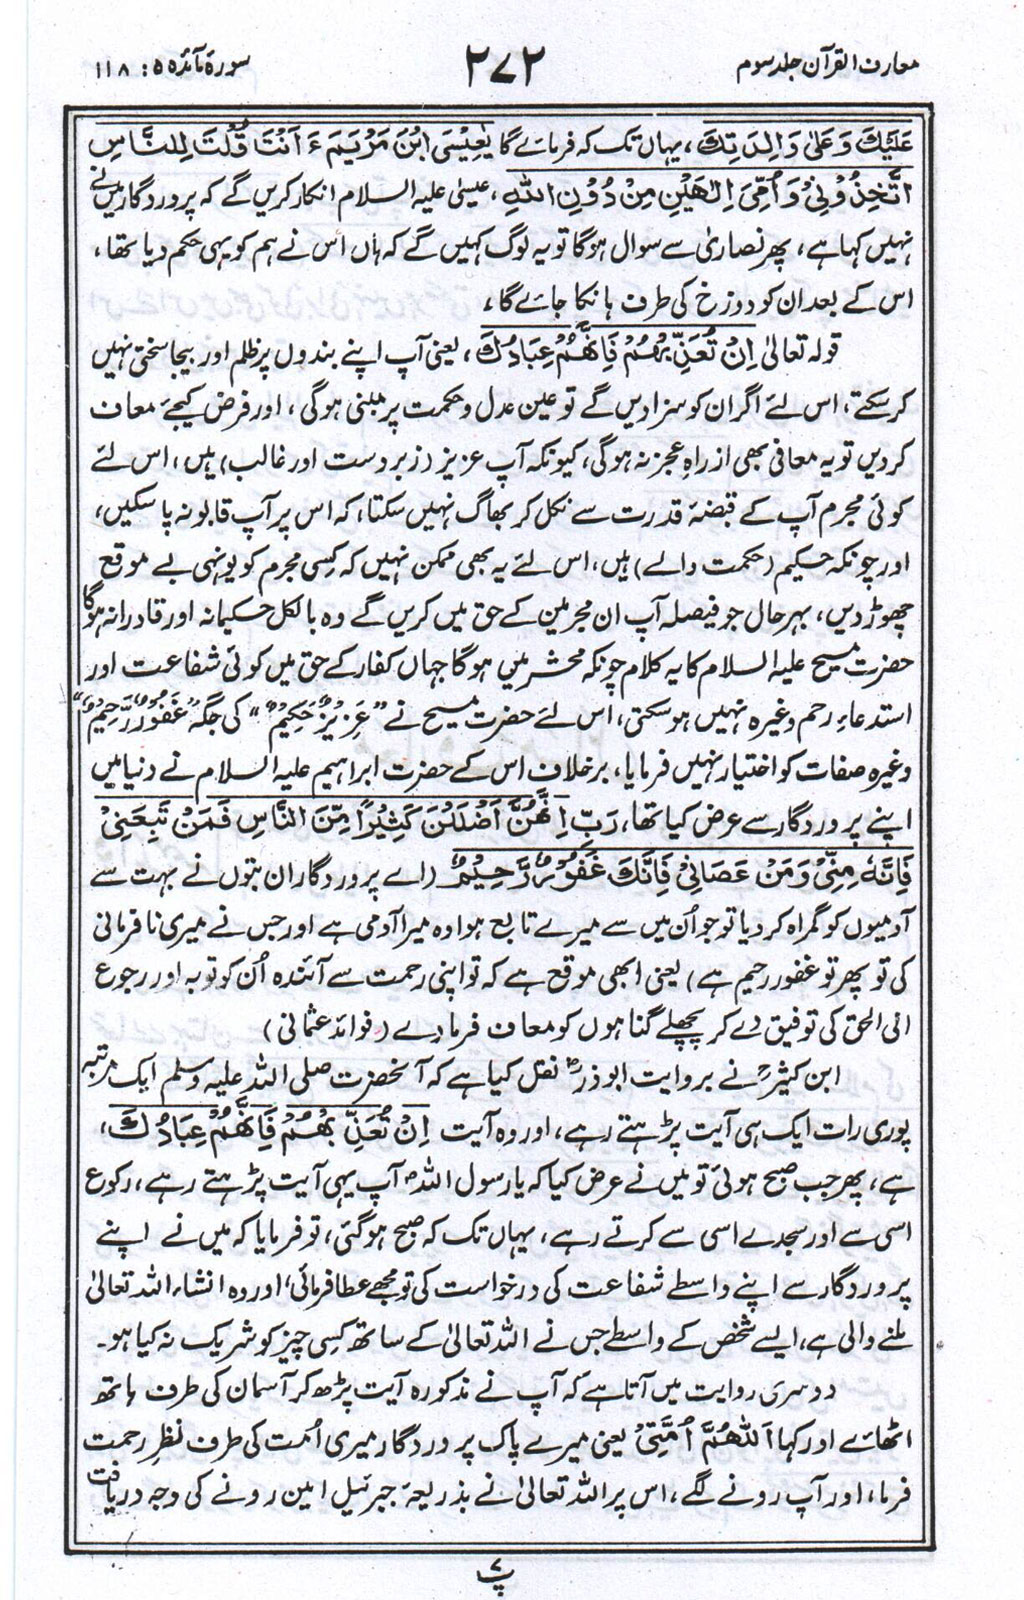 معارف القرآن جلد سوم
۲۷۲
سورۃ مائدہ ۵: ۱۱۸
عَلَيْكَ وَعَلىٰ وَالِدَتِكَ، یہاں تک کہ فرمائے گا يٰعِيْسَى ابْنَ مَرْيَمَ ءَ اَنْتَ قُلْتَ لِلنَّاسِ
اتَّخِذُوْنِيْ وَاُمِّيَ اِلٰهَيْنِ مِنْ دُوْنِ اللّٰهِ، عیسیٰ علیہ السلام انکار کریں گے کہ پروردگار میں نے
نہیں کہا ہے، پھر نصاریٰ سے سوال ہوگا تو یہ لوگ کہیں گے کہ ہاں اس نے ہم کو یہی حکم دیا تھا،
اس کے بعد ان کو دوزخ کی طرف ہانکا جائے گا،
قولہ تعالیٰ اِنْ تُعَذِّبْهُمْ فَاِنَّهُمْ عِبَادُكَ، یعنی آپ اپنے بندوں پر ظلم اور بیجا سختی نہیں
کر سکتے، اس لئے اگر ان کو سزا دیں گے تو عین عدل و حکمت پر مبنی ہوگی، اور فرض کیجے معاف
کر دیں تو یہ معافی بھی از راہِ عجز نہ ہوگی، کیونکہ آپ عزیز (زبردست اور غالب) ہیں، اس لئے
کوئی مجرم آپ کے قبضۂ قدرت سے نکل کر بھاگ نہیں سکتا، کہ اس پر آپ قابو نہ پا سکیں،
اور چونکہ حکیم (حکمت والے) ہیں، اس لئے یہ بھی ممکن نہیں کہ کسی مجرم کو یونہی بے موقع
چھوڑ دیں، بہرحال جو فیصلہ آپ ان مجرمین کے حق میں کریں گے وہ بالکل حکیمانہ اور قادرانہ ہوگا
حضرت مسیح علیہ السلام کا یہ کلام چونکہ محشر میں ہوگا جہاں کفار کے حق میں کوئی شفاعت اور
استدعاءِ رحم وغیرہ نہیں ہو سکتی، اس لئے حضرت مسیح نے ”عَزِيْزٌ حَكِيْمٌ“ کی جگہ ”غَفُوْرٌ رَّحِيْمٌ“
وغیرہ صفات کو اختیار نہیں فرمایا، برخلاف اس کے حضرت ابراہیم علیہ السلام نے دنیا میں
اپنے پروردگار سے عرض کیا تھا، رَبِّ اِنَّهُنَّ اَضْلَلْنَ كَثِيْرًا مِّنَ النَّاسِ فَمَنْ تَبِعَنِيْ
فَاِنَّهٗ مِنِّيْ وَمَنْ عَصَانِيْ فَاِنَّكَ غَفُوْرٌ رَّحِيْمٌ (اے پروردگار ان بتوں نے بہت سے
آدمیوں کو گمراہ کر دیا تو جو اُن میں سے میرے تابع ہوا وہ میرا آدمی ہے اور جس نے میری نافرمانی
کی تو پھر تو غفور رحیم ہے) یعنی ابھی موقع ہے کہ تو اپنی رحمت سے آئندہ اُن کو توبہ اور رجوع
الی الحق کی توفیق دے کر پچھلے گناہوں کو معاف فرما دے (فوائد عثمانی)
ابن کثیرؒ نے بروایت ابوذرؓ نقل کیا ہے کہ آنحضرت صلی اللہ علیہ وسلم ایک مرتبہ
پوری رات ایک ہی آیت پڑھتے رہے، اور وہ آیت اِنْ تُعَذِّبْهُمْ فَاِنَّهُمْ عِبَادُكَ،
ہے، پھر جب صبح ہوئی تو میں نے عرض کیا کہ یا رسول اللہؐ آپ یہی آیت پڑھتے رہے، رکوع
اسی سے اور سجدے اسی سے کرتے رہے، یہاں تک کہ صبح ہو گئی، تو فرمایا کہ میں نے اپنے
پروردگار سے اپنے واسطے شفاعت کی درخواست کی تو مجھے عطا فرمائی، اور وہ انشاء اللہ تعالیٰ
ملنے والی ہے، ایسے شخص کے واسطے جس نے اللہ تعالیٰ کے ساتھ کسی چیز کو شریک نہ کیا ہو۔
دوسری روایت میں آتا ہے کہ آپ نے مذکورہ آیت پڑھ کر آسمان کی طرف ہاتھ
اٹھائے اور کہا اَللّٰهُمَّ اُمَّتِيْ یعنی میرے پاک پروردگار میری اُمت کی طرف نظرِ رحمت
فرما، اور آپ رونے لگے، اس پر اللہ تعالیٰ نے بذریعہ جبرئیل امین رونے کی وجہ دریافت
پ ۷